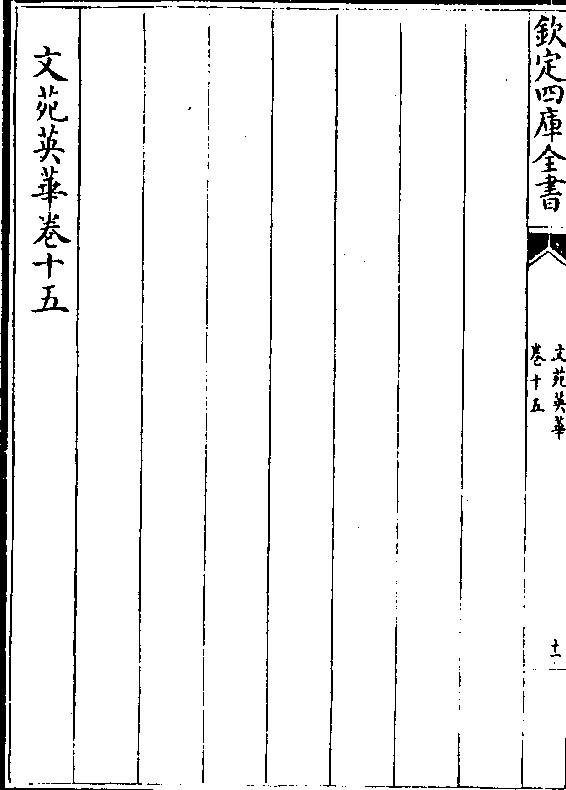 欽定四庫全書
文苑英華
卷十五
十一
文苑英華卷十五